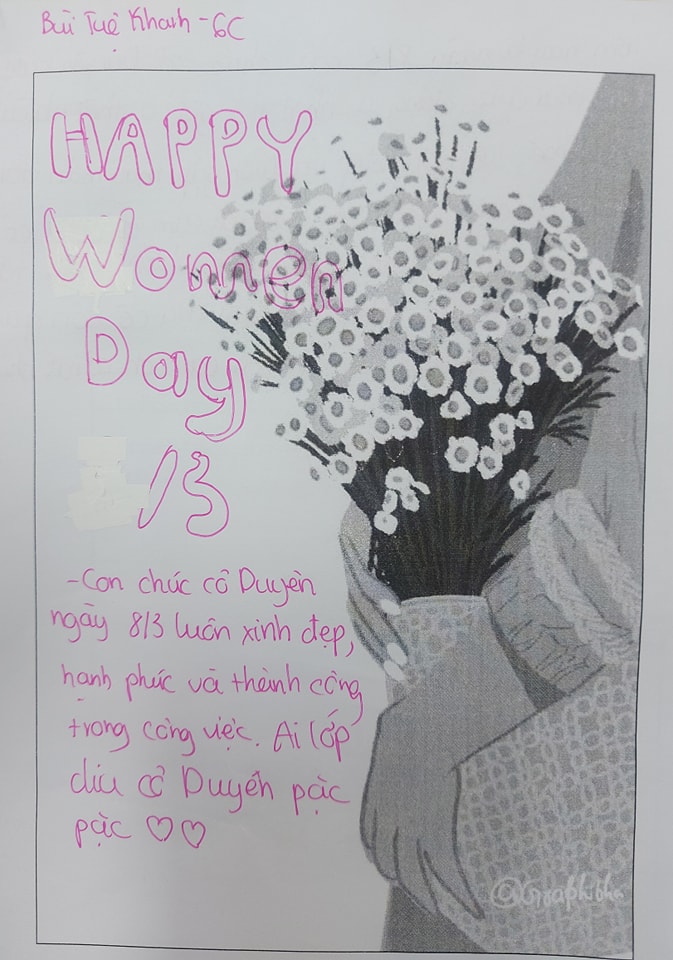 Bùi Tuệ Khanh - 6C
HAPPY
Women
Day
/3
- Con chúc cô Duyên
ngày 8/3 luôn xinh đẹp,
hạnh phúc và thành công
trong công việc. Ai lớp
diu cô Duyên pặc
pặc ♡♡